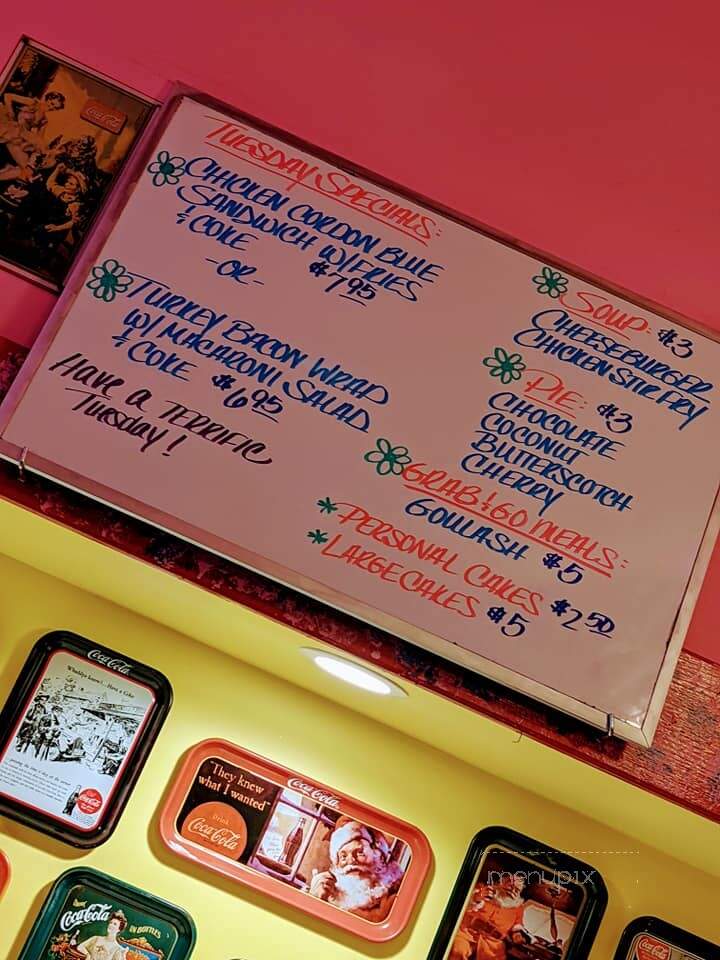 TUESDAY SPECIALS:
CHICKEN CORDON BLUE
SANDWICH W/FRIES
& COKE $7.95
-OR-
TURKEY BACON WRAP
W/ MACARONI SALAD
& COKE $6.95
HAVE A TERRIFIC
TUESDAY!
SOUP: $3
CHEESEBURGER
CHICKEN STIR FRY
PIE: $3
CHOCOLATE
COCONUT
BUTTERSCOTCH
CHERRY
GRAB & GO MEALS:
GOULASH $5
* PERSONAL CAKES $2.50
* LARGE CAKES $5
Coca-Cola
Coca-Cola
Coca-Cola
"They knew
what I wanted"
Drink
Coca-Cola
Coca-Cola
IN BOTTLES
menupix